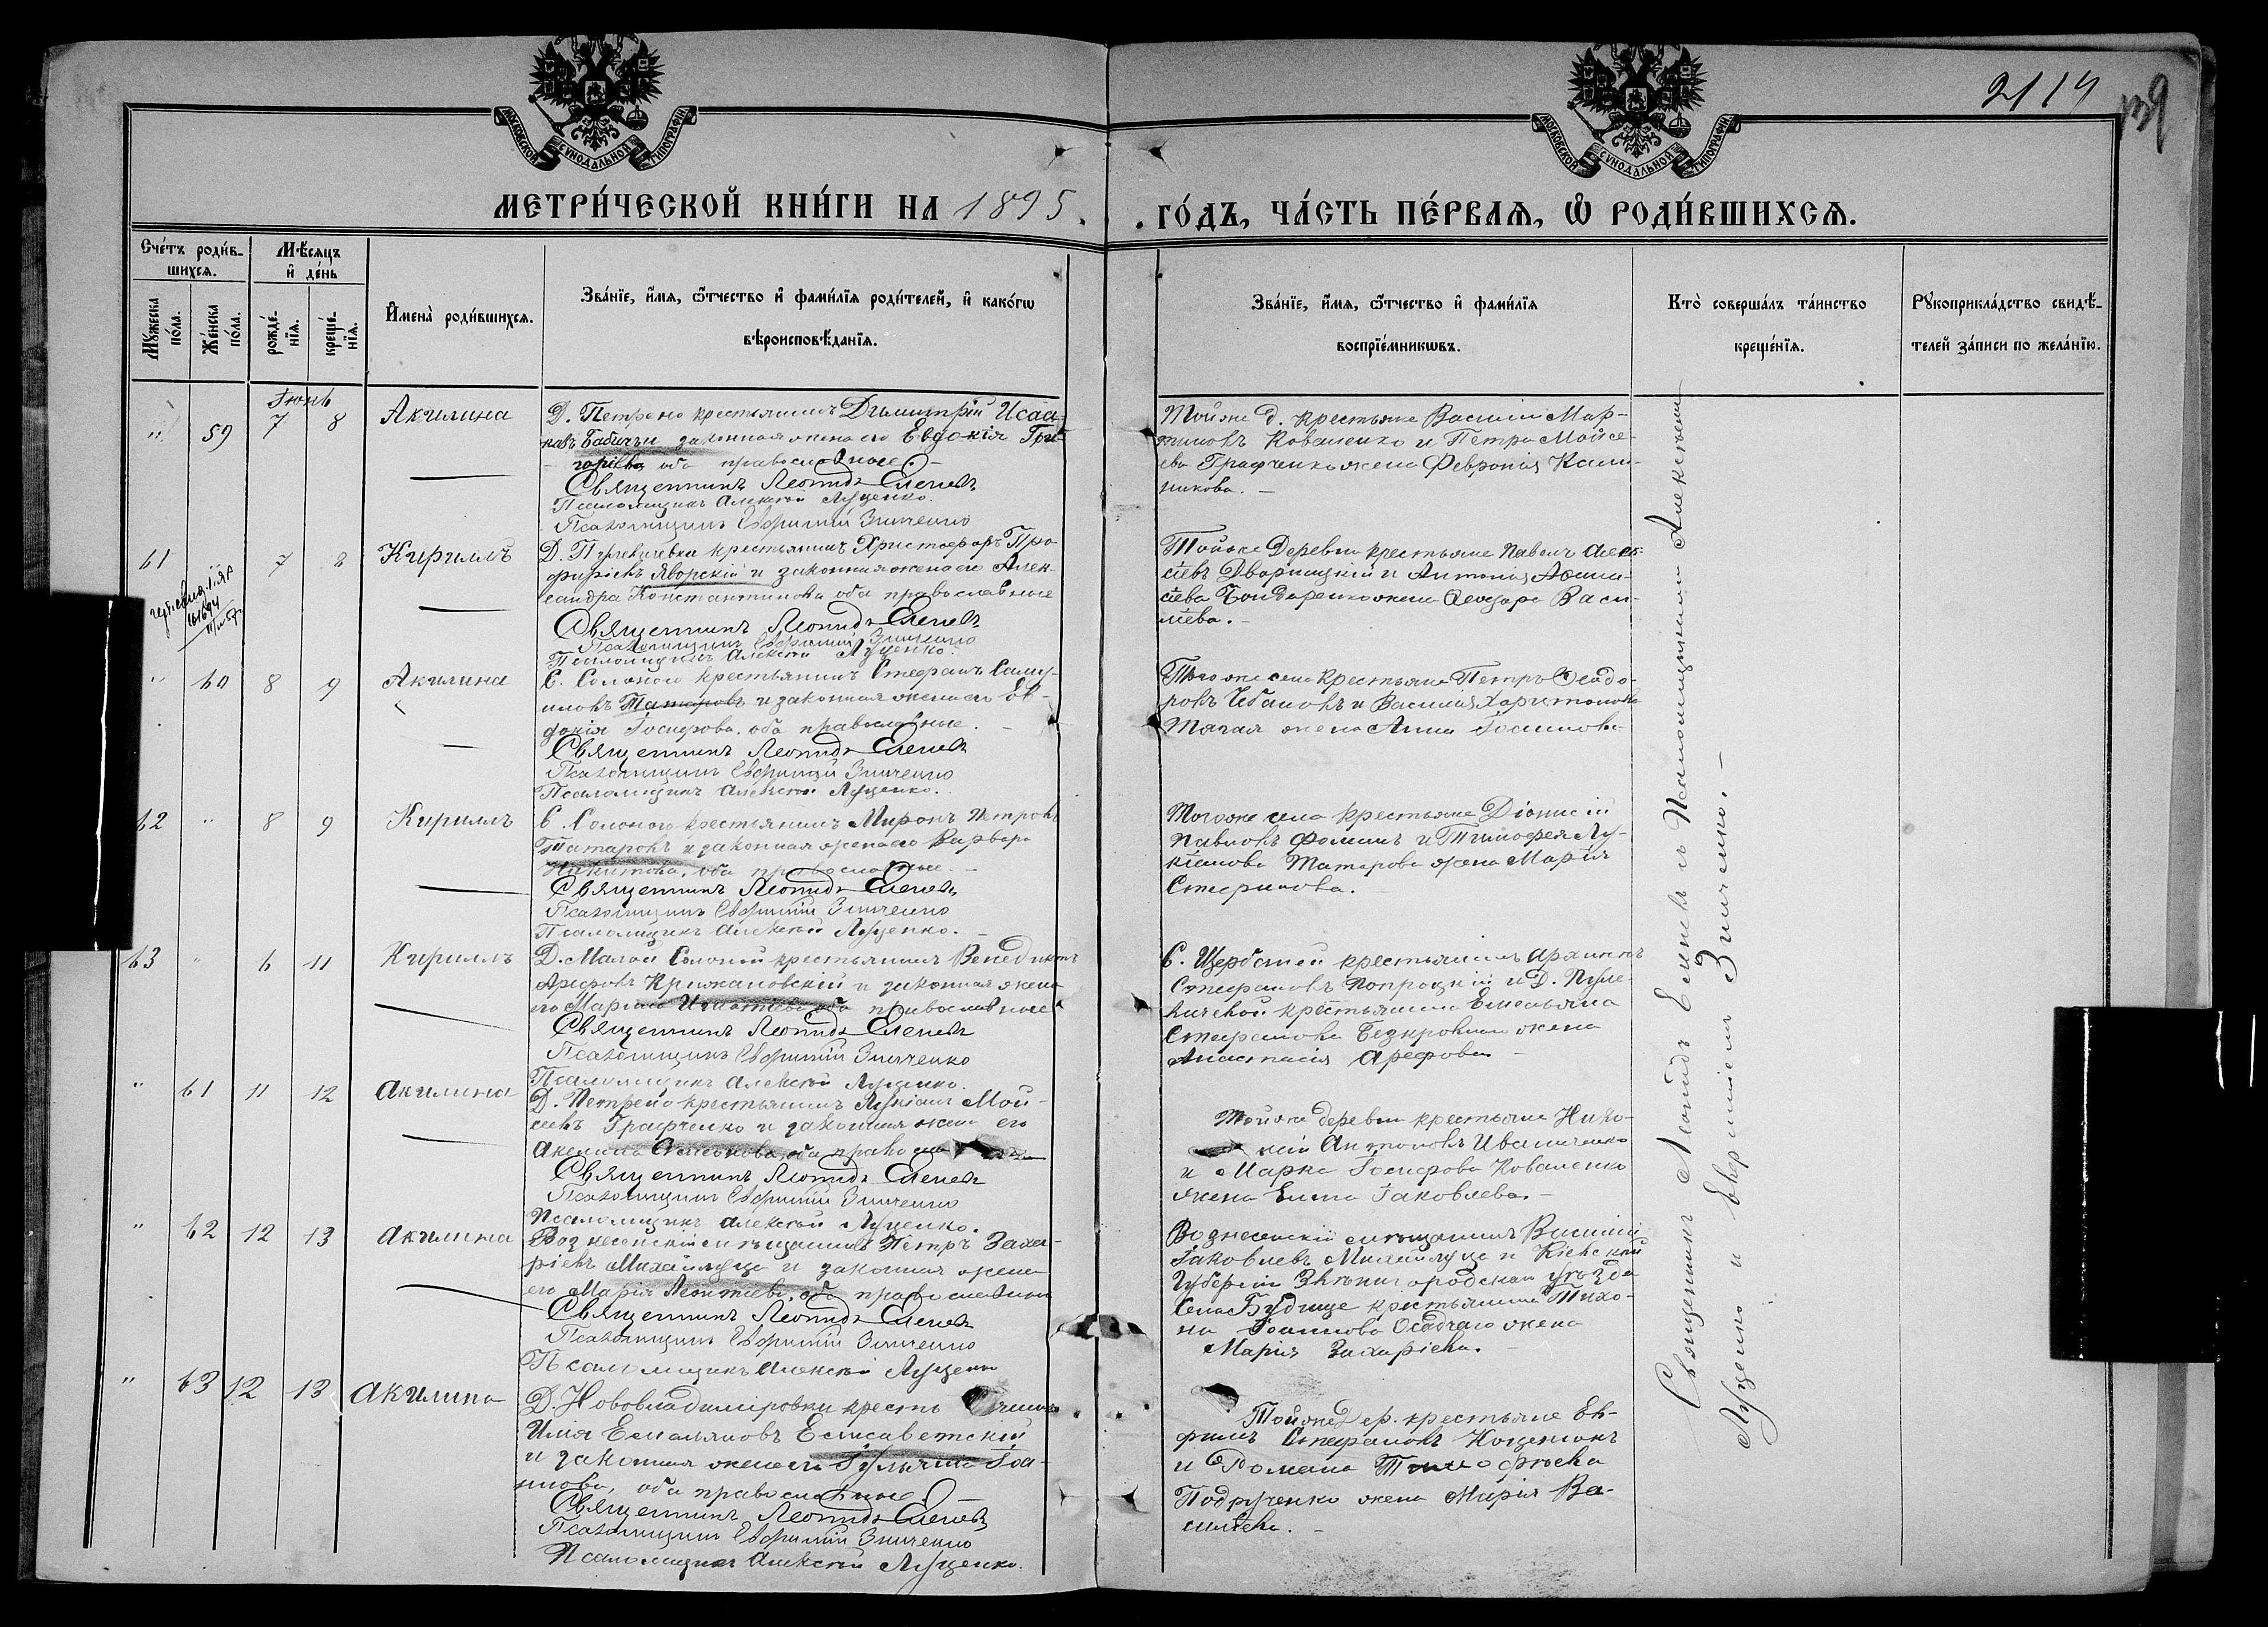 2114
139
МОСКОВСКОЙ СѴНОДАЛЬНОЙ ТИПОГРАФІИ
МОСКОВСКОЙ СѴНОДАЛЬНОЙ ТИПОГРАФІИ
МЕТРИ́ЧЕСКОЙ КНИ́ГИ НА 1895. ГО́ДЪ, ЧА́СТЬ ПЕ́РВАѦ, Ѽ РОДИ́ВШИХСѦ.
Сче́тъ роди́в-
шихсѧ.
Мꙋжеска по́ла.
Же́нска по́ла.
Мѣ́сѧцъ
и҆ де́нь
рожде́-
нїѧ.
креще́-
нїѧ.
И҆мена̀ роди́вшихсѧ.
Зва́нїе, и҆́мѧ, ѻ҆́тчество и҆ фами́лїѧ роди́телей, и҆ како́гѡ
вѣроисповѣ́данїѧ.
Зва́нїе, и҆́мѧ, ѻ҆́тчество и҆ фами́лїѧ
воспрїе́мникѡвъ.
Кто̀ соверша́лъ та́инство
креще́нїѧ.
Рꙋкоприкла́дство свидѣ́-
телей за́писи по жела́нїю.
Іюнь
" 59 7 8 Акилина
Д. Петрено крестьянинъ Димитрій Исаа-
ковъ Бабичъ и законная жена его Евдокія Гри-
горіева оба православные.
Священникъ Леонидъ Еленевъ
Псаломщикъ Алексѣй Луценко.
Псаломщикъ Евфимій Зинченко
Тойже д. крестьяне Василій Мар-
тиновъ Коваленко и Петра Мойсе-
ева Графченко жена Феврония Калин-
никова.
61 " 7 8 Кириллъ
Д. Пулевичевки крестьянинъ Христофоръ Про-
фиріевъ Яворскій и законная жена его Алек-
сандра Константинова оба православные
Священникъ Леонидъ Еленевъ
Псаломщикъ Евфимій Зинченко
Псаломщикъ Алексѣй Луценко.
Тойже Деревни крестьяне Павелъ Алек-
сіевъ Дворницкій и Антонія Афана-
сіева Бондаренко жена Ѳеодора Васи-
ліева.
" 60 8 9 Акилина
С. Солоного крестьянинъ Стефанъ Саму-
иловъ Татаровъ и законная жена его Ев-
докія Іосифова, оба православные.
Священникъ Леонидъ Еленевъ
Псаломщикъ Евфимій Зинченко
Псаломщикъ Алексѣй Луценко.
Того же села крестьяне Петръ Ѳеодо-
ровъ Чебановъ и Василія Харитонова
Тягая жена Анна Іоаннова
62 " 8 9 Кириллъ
С. Солоного крестьянинъ Миронъ Петровъ
Татаровъ и законная жена его Варвара
Никитова, оба православные.
Священникъ Леонидъ Еленевъ
Псаломщикъ Евфимій Зинченко
Псаломщикъ Алексѣй Луценко.
Того же села крестьяне Діонисій
Павловъ Фоминъ и Тимофея Лу-
кіанова Татарова жена Марія
Стефанова.
63 " 6 11 Кириллъ
Д. Малой Солоной крестьянинъ Венедиктъ
Арефовъ Крижановскій и законная жена
его Марина Игнатіева оба православные
Священникъ Леонидъ Еленевъ
Псаломщикъ Евфимій Зинченко
Псаломщикъ Алексѣй Луценко.
С. Щербаней крестьянинъ Архиппъ
Стефановъ Попроцкій и Д. Пуле-
вичевой крестьянина Емельяна
Стефанова Безкровнаго жена
Анастасія Арефова
" 61 11 12 Акилина
Д. Петрено крестьянинъ Лукіанъ Мой-
сеевъ Графченко и законная жена его
Акилина оба православные
Священникъ Леонидъ Еленевъ
Псаломщикъ Евфимій Зинченко
Псаломщикъ Алексѣй Луценко.
Тойже деревни крестьяне Нико-
лай Антоновъ Иваниченко
и Марка Іосифова Коваленко
жена Елена Іаковлева.
" 62 12 13 Акилина
Вознесенскій мѣщанинъ Петръ Заха-
ріевъ Михайлуца и законная жена
его Марія Леонтіева, оба православные
Священникъ Леонидъ Еленевъ
Псаломщикъ Евфимій Зинченко
Псаломщикъ Алексѣй Луценко
Вознесенскій мѣщанинъ Василій
Іаковлевъ Михайлуца и Кіевской
Губерніи Звенигородскаго уѣзда
Села Будище крестьянина Тихо-
на Іоаннова Осадчаго жена
Марія Захаріева.
" 63 12 13 Акилина
Д. Нововладиміровки крестьянинъ
Илія Емельяновъ Елисаветскій
и законная жена его Гликерія Іоа-
ннова, оба православные
Священникъ Леонидъ Еленевъ
Псаломщикъ Евфимій Зинченко
Псаломщикъ Алексѣй Луценко.
Тойже Дер. крестьяне Ев-
фимъ Стефановъ Коценюкъ
и Романа Тимофѣева
Подрученко жена Марія Ва-
силіева.
Священникъ Леонидъ Еленевъ съ Псаломщиками Алексѣемъ
Луценко и Евфиміемъ Зинченко.